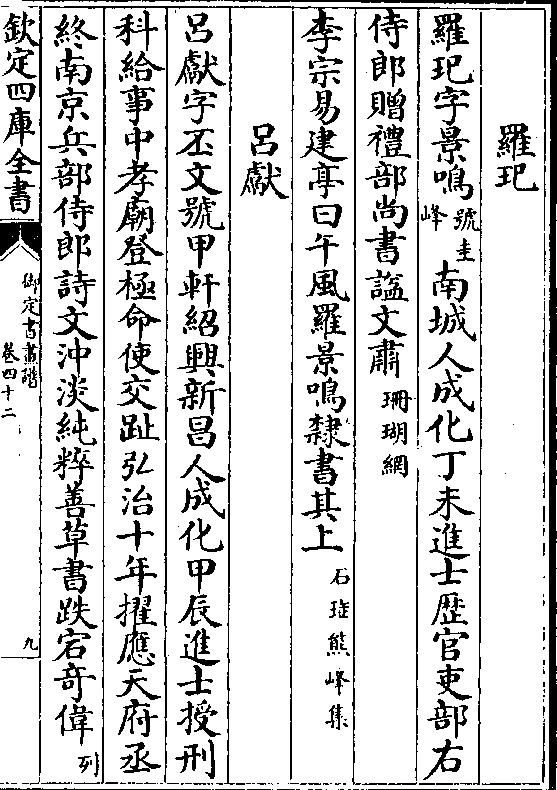 羅玘
羅玘字景鳴號圭峰南城人成化丁未進士歴官吏部右
侍郎贈禮部尚書諡文肅珊瑚網
李宗易建亭曰午風羅景鳴隸書其上石珤熊峰集
吕獻
吕獻字丕文號甲軒紹興新昌人成化甲辰進士授刑
科給事中孝廟登極命使交趾弘治十年擢應天府丞
終南京兵部侍郎詩文沖淡純粹善草書跌宕竒偉列
欽定四庫全書
御定書畫譜
卷四十二
九